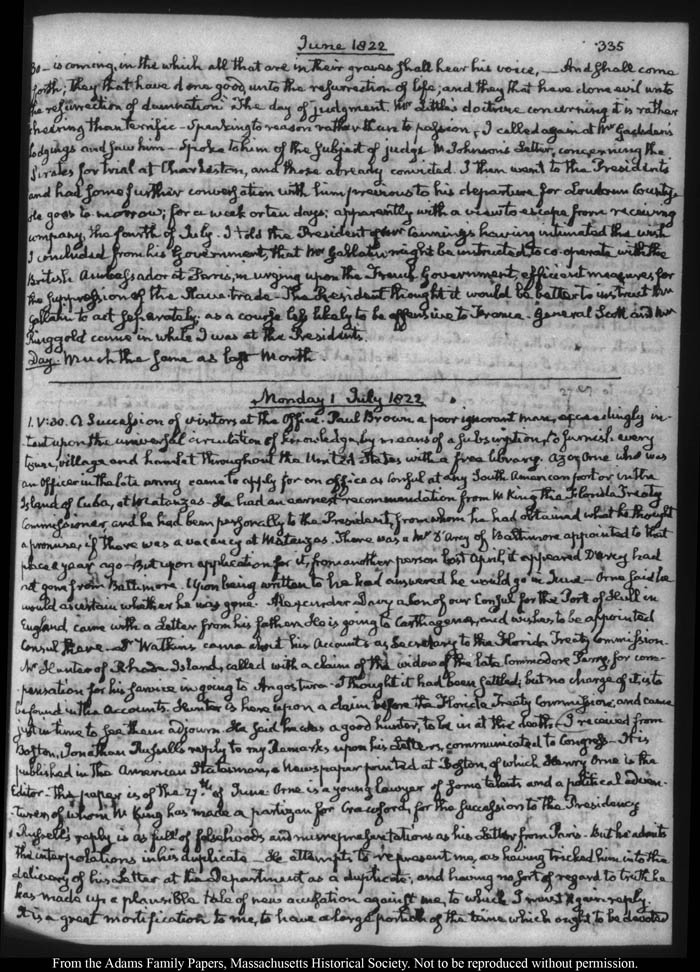 June 1822
335
30 — is coming, in the which all that are in their graves shall hear his voice, — And shall come
forth; they that have done good, unto the resurrection of life; and they that have done evil unto
the resurrection of damnation. The day of judgment. Mr Little's doctrine concerning it is rather
cheering than terrific — Speaking to reason rather than to passion, I called again at Mr Gadsden's
lodgings and saw him — Spoke to him of the subject of judge W. Johnson's Letter, concerning the
Pirates for trial at Charleston, and those already convicted. I then went to the President's
and had some further conversation with him previous to his departure for Loudoun County.
He goes to-morrow; for a week or ten days; apparently with a view to escape from receiving
company, the fourth of July. I told the President of Mr Canning's having intimated the wish
I concluded from his Government, that Mr Gallatin might be instructed to co-operate with the
British Ambassador at Paris, in urging upon the French Government, efficient measures for
the suppression of the Slave trade — The President thought it would be better to instruct Mr
Gallatin to act separately; as a course less likely to be offensive to France. General Scott and Mr
Ringgold came in while I was at the President's.
Day. Much the same as last Month.
Monday 1 July 1822
1. V:30. A Succession of visitors at the Office. Paul Brown, a poor ignorant man, exceedingly in-
tent upon the universal circulation of knowledge, by means of a subscription, to furnish every
town, village and hamlet throughout the United States with a free library. Orne who was
an Officer in the late army came to apply for an office as Consul at any South American port or in the
Island of Cuba, at Matanzas. He had an earnest recommendation from W. King the Florida Treaty
Commissioner, and he had been personally to the President, from whom he had obtained what he thought
a promise, if there was a vacancy at Matanzas. There was a Mr D'Arcy of Baltimore appointed to that
place a year ago — But upon application for it, from another person last April, it appeared D'Arcy had
not gone from Baltimore. Upon being written to he had answered he would go in June — Orne said he
would ascertain whether he was gone. Alexander Davy a son of our Consul for the Port of Hull in
England came with a Letter from his father. He is going to Carthagena, and wishes to be appointed
Consul there. — Dr Watkins came about his Accounts as Secretary to the Florida Treaty Commission.
Mr Hunter of Rhode Island, called with a claim of the widow of the late Commodore Perry, for com-
pensation for his service in going to Angostura. I thought it had been settled; but no charge of it is to
be found in the Accounts. Hunter is here upon a claim before the Florida Treaty Commission, and came
just in time to see them adjourn. He said he was a good hunter, to be in at the death. — I received from
Boston, Jonathan Russell's reply to my Remarks upon his Letters, communicated to Congress — It is
published in the American Statesman, a Newspaper printed at Boston, of which Henry Orne is the
Editor. The paper is of the 27th of June. Orne is a young lawyer of some talents and a political adven-
turer, of whom W. King has made a partizan for Crawford, for the succession to the Presidency
Russell's reply is as full of falsehoods and misrepresentations as his Letter from Paris. But he admits
the interpolations in his duplicate — He attempts to represent me, as having tricked him into the
delivery of his Letter at the Department as a duplicate; and having no sort of regard to truth he
has made up a plausible tale of new accusation against me, to which I must again reply.
It is a great mortification to me, to have a large portion of the time which ought to be devoted
From the Adams Family Papers, Massachusetts Historical Society. Not to be reproduced without permission.